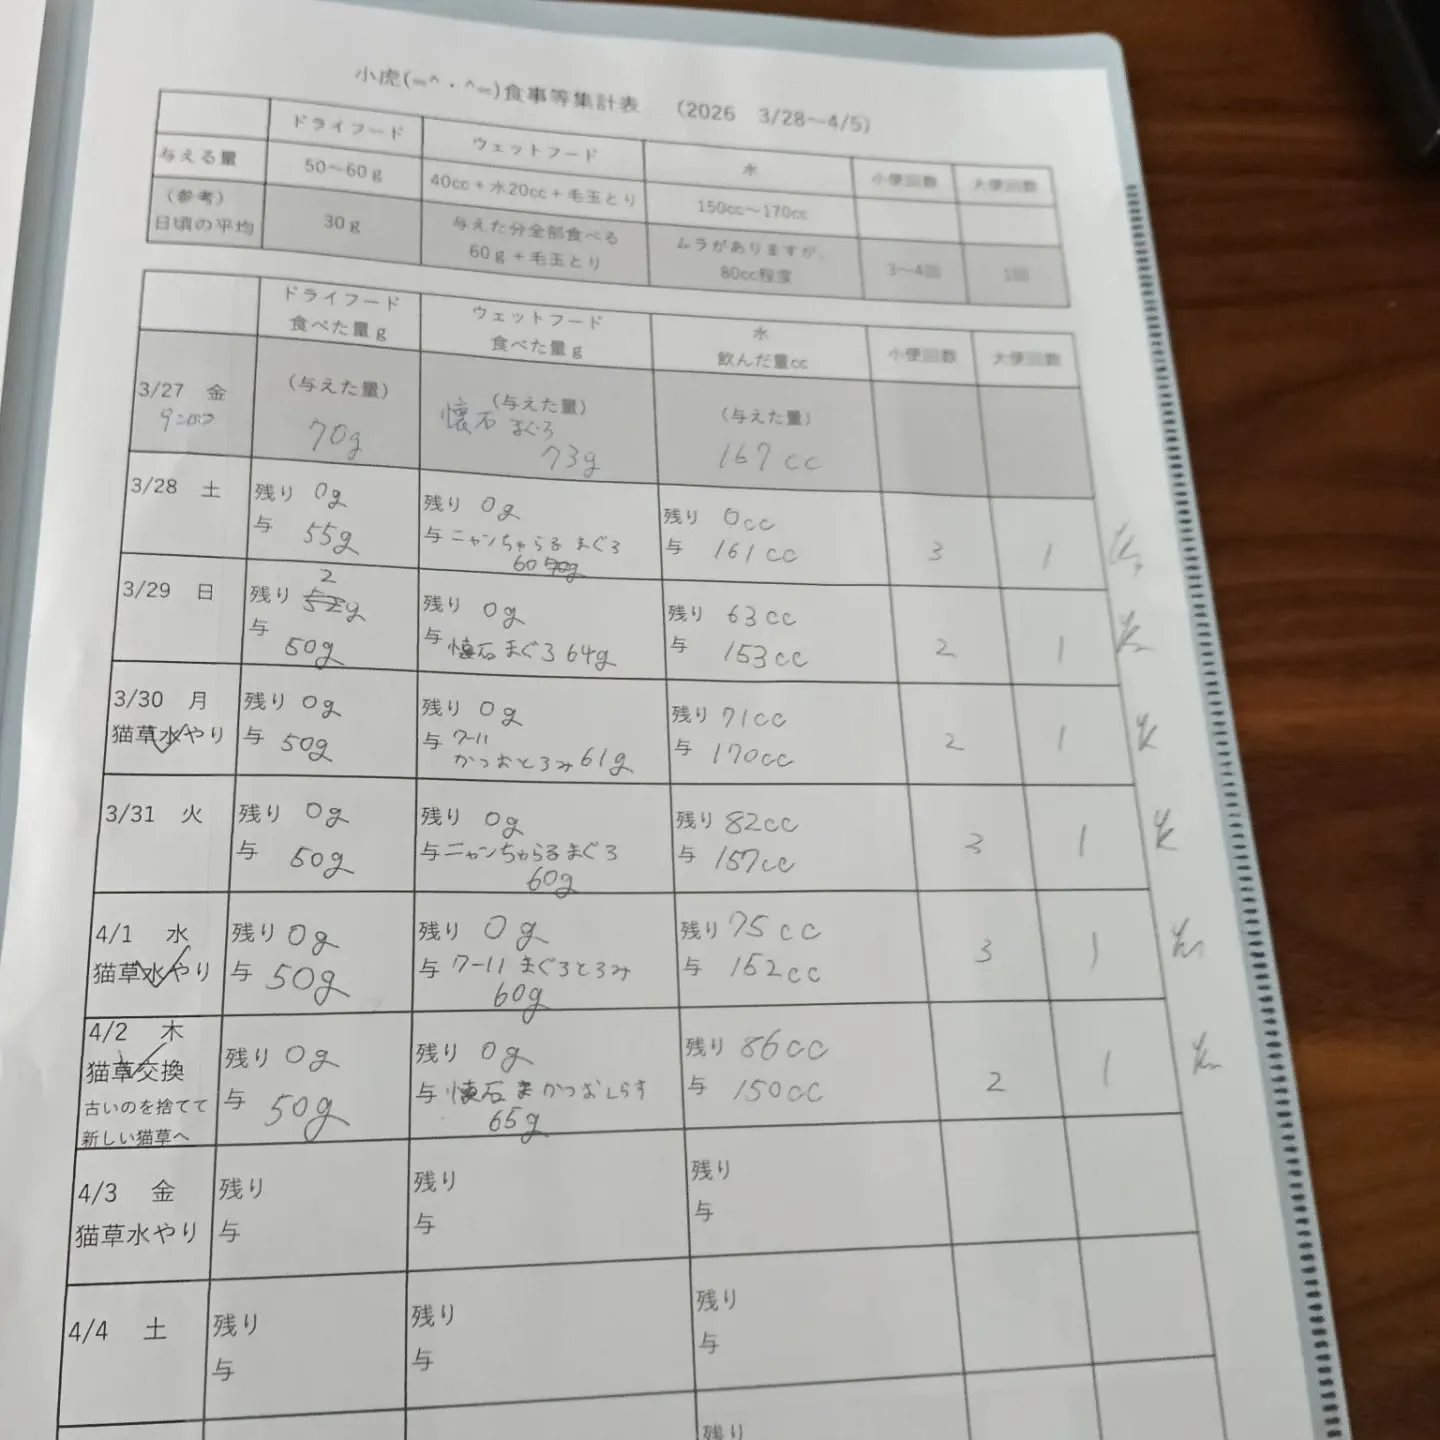 小虎(=^・^=)食事等集計表 (2026 3/28～4/5)
ドライフード ウェットフード 水 小便回数 大便回数
与える量 50～60g 40cc+水20cc+毛玉とり 150cc～170cc
(参考)
日頃の平均 30g 与えた分全部食べる
60g+毛玉とり
ムラがありますが、
80cc程度
3～4回 1回
ドライフード
食べた量g
ウェットフード
食べた量g
水
飲んだ量cc
小便回数 大便回数
3/27 金
(与えた量)
70g
(与えた量)
懐石 まぐろ
73g
(与えた量)
167cc
3/28 土
残り 0g
与 55g
残り 0g
与 ニャンちゅらる まぐろ
60
残り 0cc
与 161cc
3 1
3/29 日
残り 2g
与 50g
残り 0g
与 懐石 まぐろ 64g
残り 63cc
与 153cc
2 1
3/30 月
猫草水やり
残り 0g
与 50g
残り 0g
与 7-11
かつおとろみ 61g
残り 71cc
与 170cc
2 1
3/31 火
残り 0g
与 50g
残り 0g
与 ニャンちゅらる まぐろ
60g
残り 82cc
与 157cc
3 1
4/1 水
猫草水やり
残り 0g
与 50g
残り 0g
与 7-11 まぐろとろみ
60g
残り 75cc
与 152cc
3 1
4/2 木
猫草交換
古いのを捨てて
新しい猫草へ
残り 0g
与 50g
残り 0g
与 懐石 かつおしらす
65g
残り 86cc
与 150cc
2 1
4/3 金
猫草水やり
残り
与
残り
与
残り
与
4/4 土
残り
与
残り
与
残り
与
残り